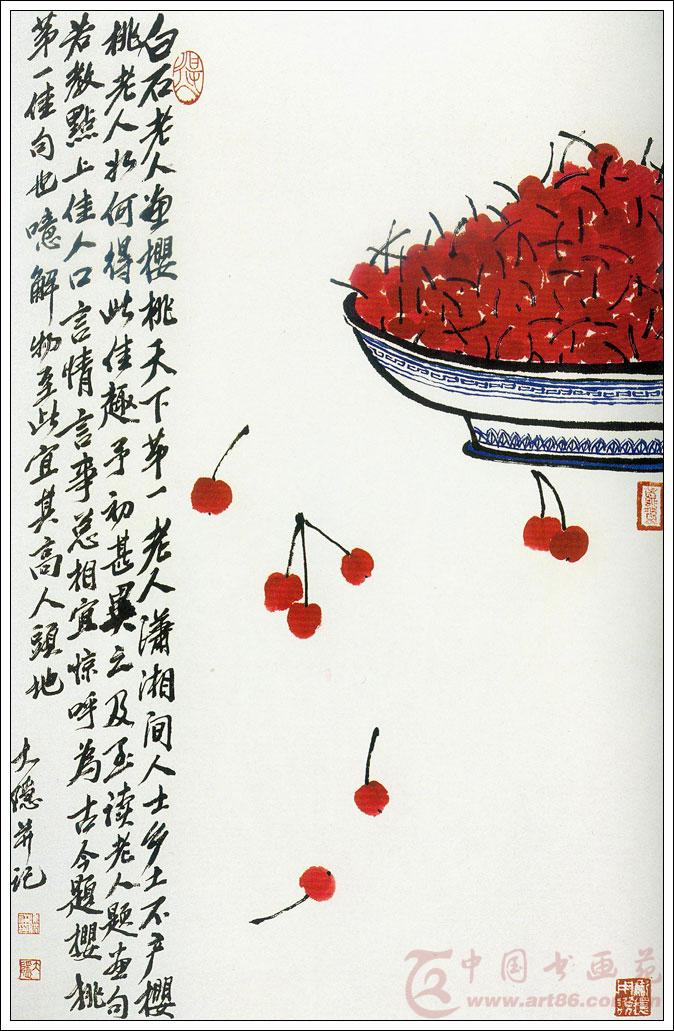 白石老人画櫻桃天下第一老人瀟湘间人士乡土不产櫻
桃老人於何得此佳趣予初甚異之及至读老人题画句
若教點上佳人口言情言事总相宜惊呼為古今題櫻桃
第一佳句也噫解物至此宜其高人頭地
大隱并記
中国书画苑
www.art86.com